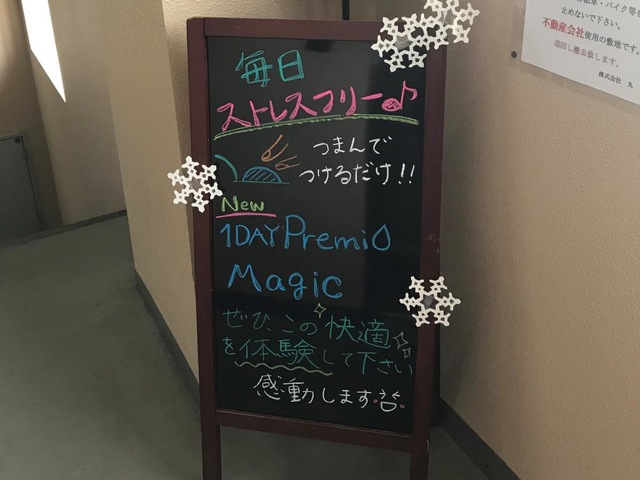 毎日
ストレスフリー♪
つまんで
つけるだけ!!
New
1DAY Premio
Magic
ぜひ、この快適
を体験して下さい
感動します
止めないで下さい。
不動産会社使用の敷地です。
巡回し撤去致します。
株式会社 丸